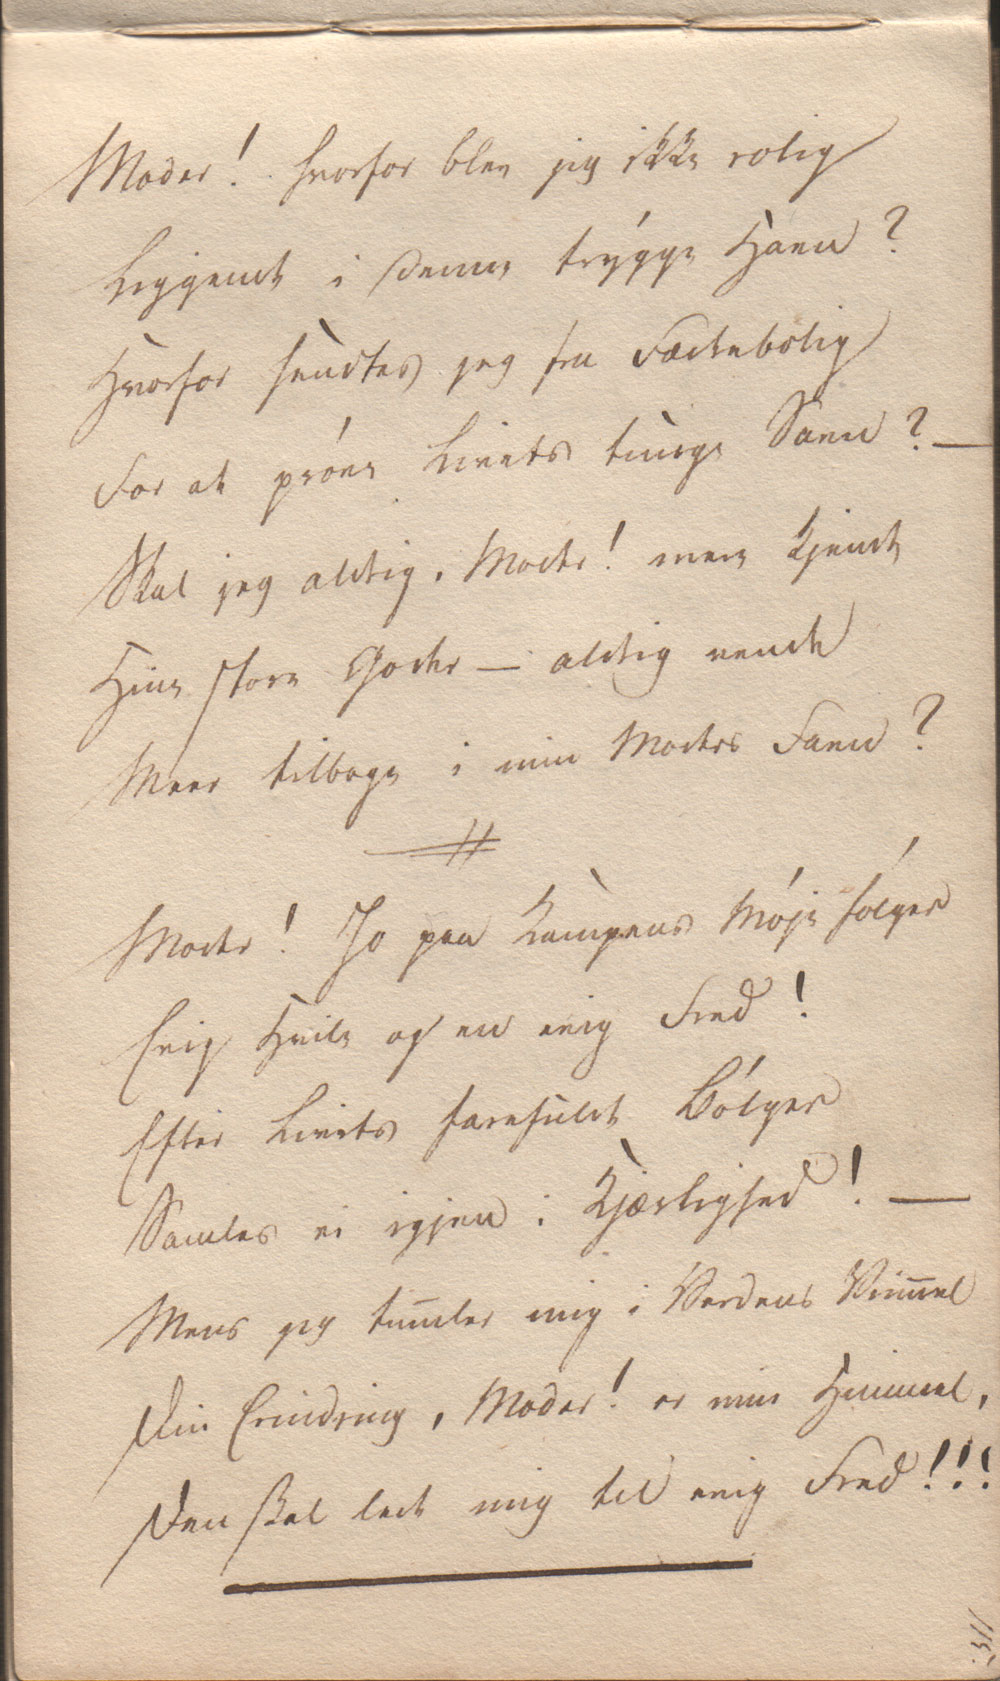 Moder! hvorfor blev jeg ikke rolig
Liggende i denne trygge Havn?
Hvorfor sendtes jeg fra Fædrebolig
For at prøve Livets tunge Savn? —
Skal jeg aldrig, Moder! mere kjende
Hine store Goder — aldrig vende
Meer tilbage i min Moders Favn?
Moder! Jo paa Kampens Møje følger
Evig Hvile og en evig Fred!
Efter Livets farefulde Bølger
Samles vi igjen i Kjærlighed! —
Mens jeg tum̅ler mig i Verdens Vim̅el
Din Erindring, Moder! er min Himmel,
Den skal lede mig til evig Fred!!!